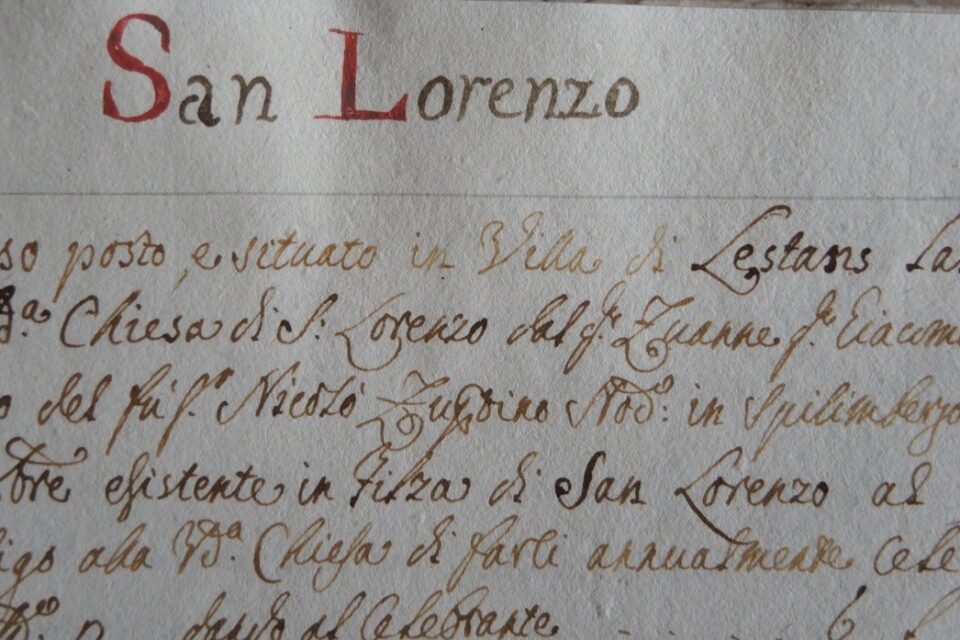 San Lorenzo
so posto, e situato in Villa di Lestans
Chiesa di S: Lorenzo dal Zuanne Giacom
del fu Nicolò Nod.º in Spilimbergo
esistente in Filza di San Lorenzo al
igo alla Vd.ª Chiesa di farli annualmente Cele
dando al Celebrante